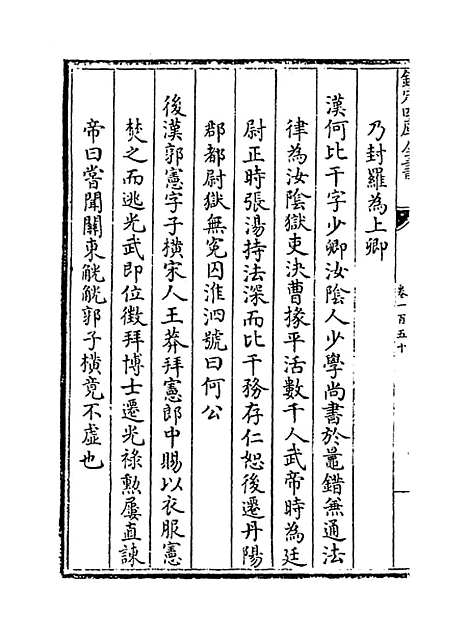 欽定四庫全書
卷一百五十
乃封羅為上卿
漢何比干字少卿汝陰人少學尚書於鼂錯兼通法
律為汝陰獄吏決曹掾平活數千人武帝時為廷
尉正時張湯持法深而比干務存仁恕後遷丹陽
郡都尉獄無冤囚淮泗號曰何公
後漢郭憲字子橫宋人王莽拜憲郎中賜以衣服憲
焚之而逃光武即位徵拜博士遷光祿勲屢直諫
帝曰嘗聞關東觥觥郭子橫竟不虛也